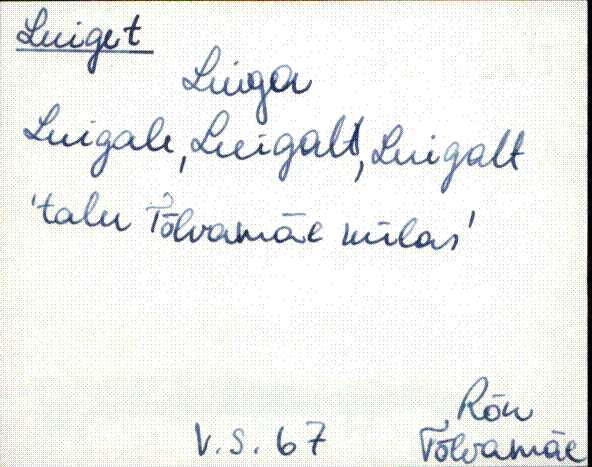 Luiget
Luiga
Luigale, Luigalt, Luigalt
'talu Tõlvamäe külas'
V.S. 67
Rõu
Tõlvamäe